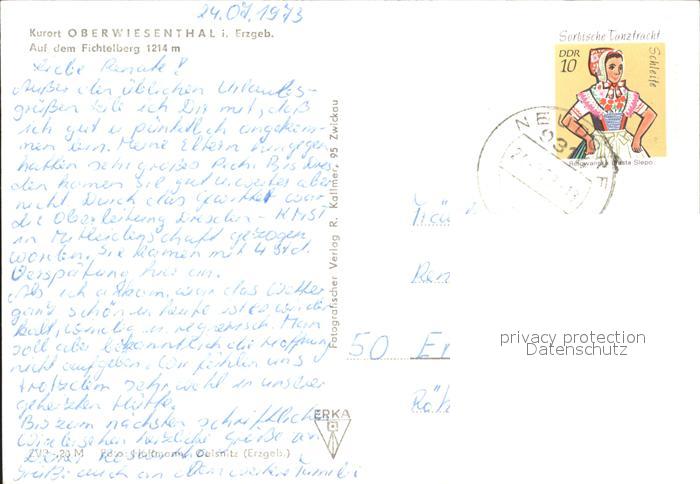 24.07.1973
Kurort OBERWIESENTHAL i. Erzgeb.
Auf dem Fichtelberg 1214 m
Liebe Renate!
Außer den üblichen Urlaubs-
grüßen teile ich Dir mit, daß
ich gut u. pünktlich angekom-
men bin. Meine Eltern hingegen
hatten sehr großes Pech. Bis Dres-
den kamen sie gut u. weiter aber
nicht. Durch das Gewitter war
die Oberleitung Dresden - KMST
in Mitleidenschaft gezogen
worden. Sie kamen mit 4 Std.
Verspätung hier an.
Als ich ankam, war das Wetter
ganz schön u. heute ist es wieder
kalt, windig u. regnerisch. Man
soll aber bekanntlich die Hoffnung
nicht aufgeben. Wir fühlen uns
trotzdem sehr wohl in unserer
geheizten Hütte.
Bis zum nächsten schriftlichen
Wiedersehen herzliche Grüße an
Grüße auch an Deine werte Familie
Foto: Hoffmann, Oelsnitz (Erzgeb.)
Fotografischer Verlag R. Kallmer, 95 Zwickau
ERKA
Sorbische Tanztracht
Schleife
DDR
10
50 Er
Ren
privacy protection
Datenschutz